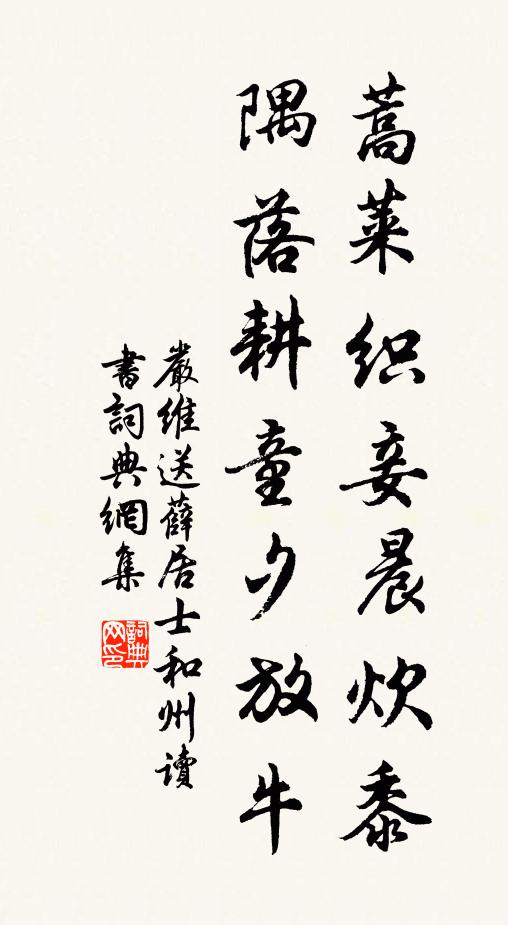 蒿萊織妾晨炊黍
隅落耕童夕放牛
嚴維送薛居士和州讀
書詞典網集
詞典网印